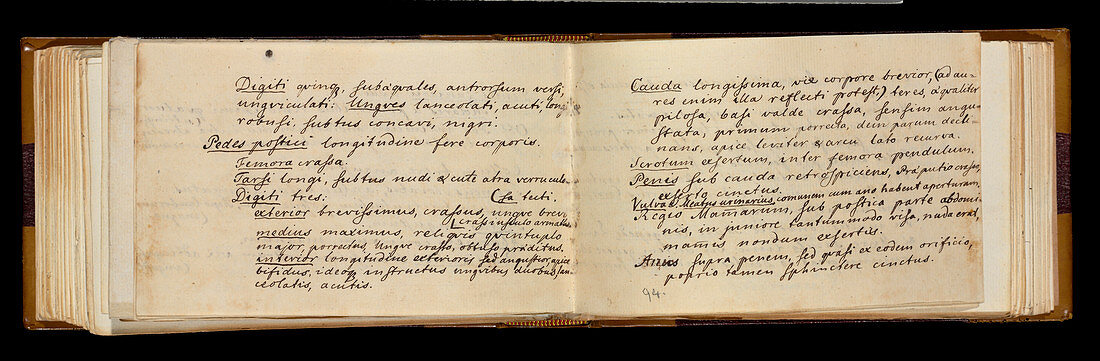 Digiti quinq, subæquales, antrorsum versi,
unguiculati: Ungues lanceolati, acuti, longi
robusti, subtus concavi, nigri.
Pedes postici longitudine fere corporis.
Femora crassa.
Tarsi longi, subtus nudi & cute atra verruculo-
Digiti tres: (sa tecti.
exterior brevissimus, crassus, ungue brevi
(crassiusculo armatus.
medius maximus, reliquis quintuplo
major, porrectus, Ungue crasso, obtuso præditus.
interior longitudine exterioris sed angustior, apice
bifidus, ideoq instructus unguibus duobus lan-
ceolatis, acutis.
Cauda longissima, vix corpore brevior, (ad au-
res enim illa reflecti potest,) teres, æqualiter
pilosa, basi valde crassa, sensim angu-
stata, primum porrecta, dein parum decli-
nans, apice leviter & arcu lato recurva.
Scrotum exsertum, inter femora pendulum.
Penis sub cauda retrospiciens, Præputio crasso,
exserto cinctus.
Vulva & Meatus urinarius, communem cum ano habent aperturam.
Regio Mamarum, sub postica parte abdomi-
nis, in juniore tantummodo visa, nuda erat,
mamis nondum exsertis.
Anus supra penem, sed quasi ex eodem orificio,
proprio tamen sphinctere cinctus.
94.